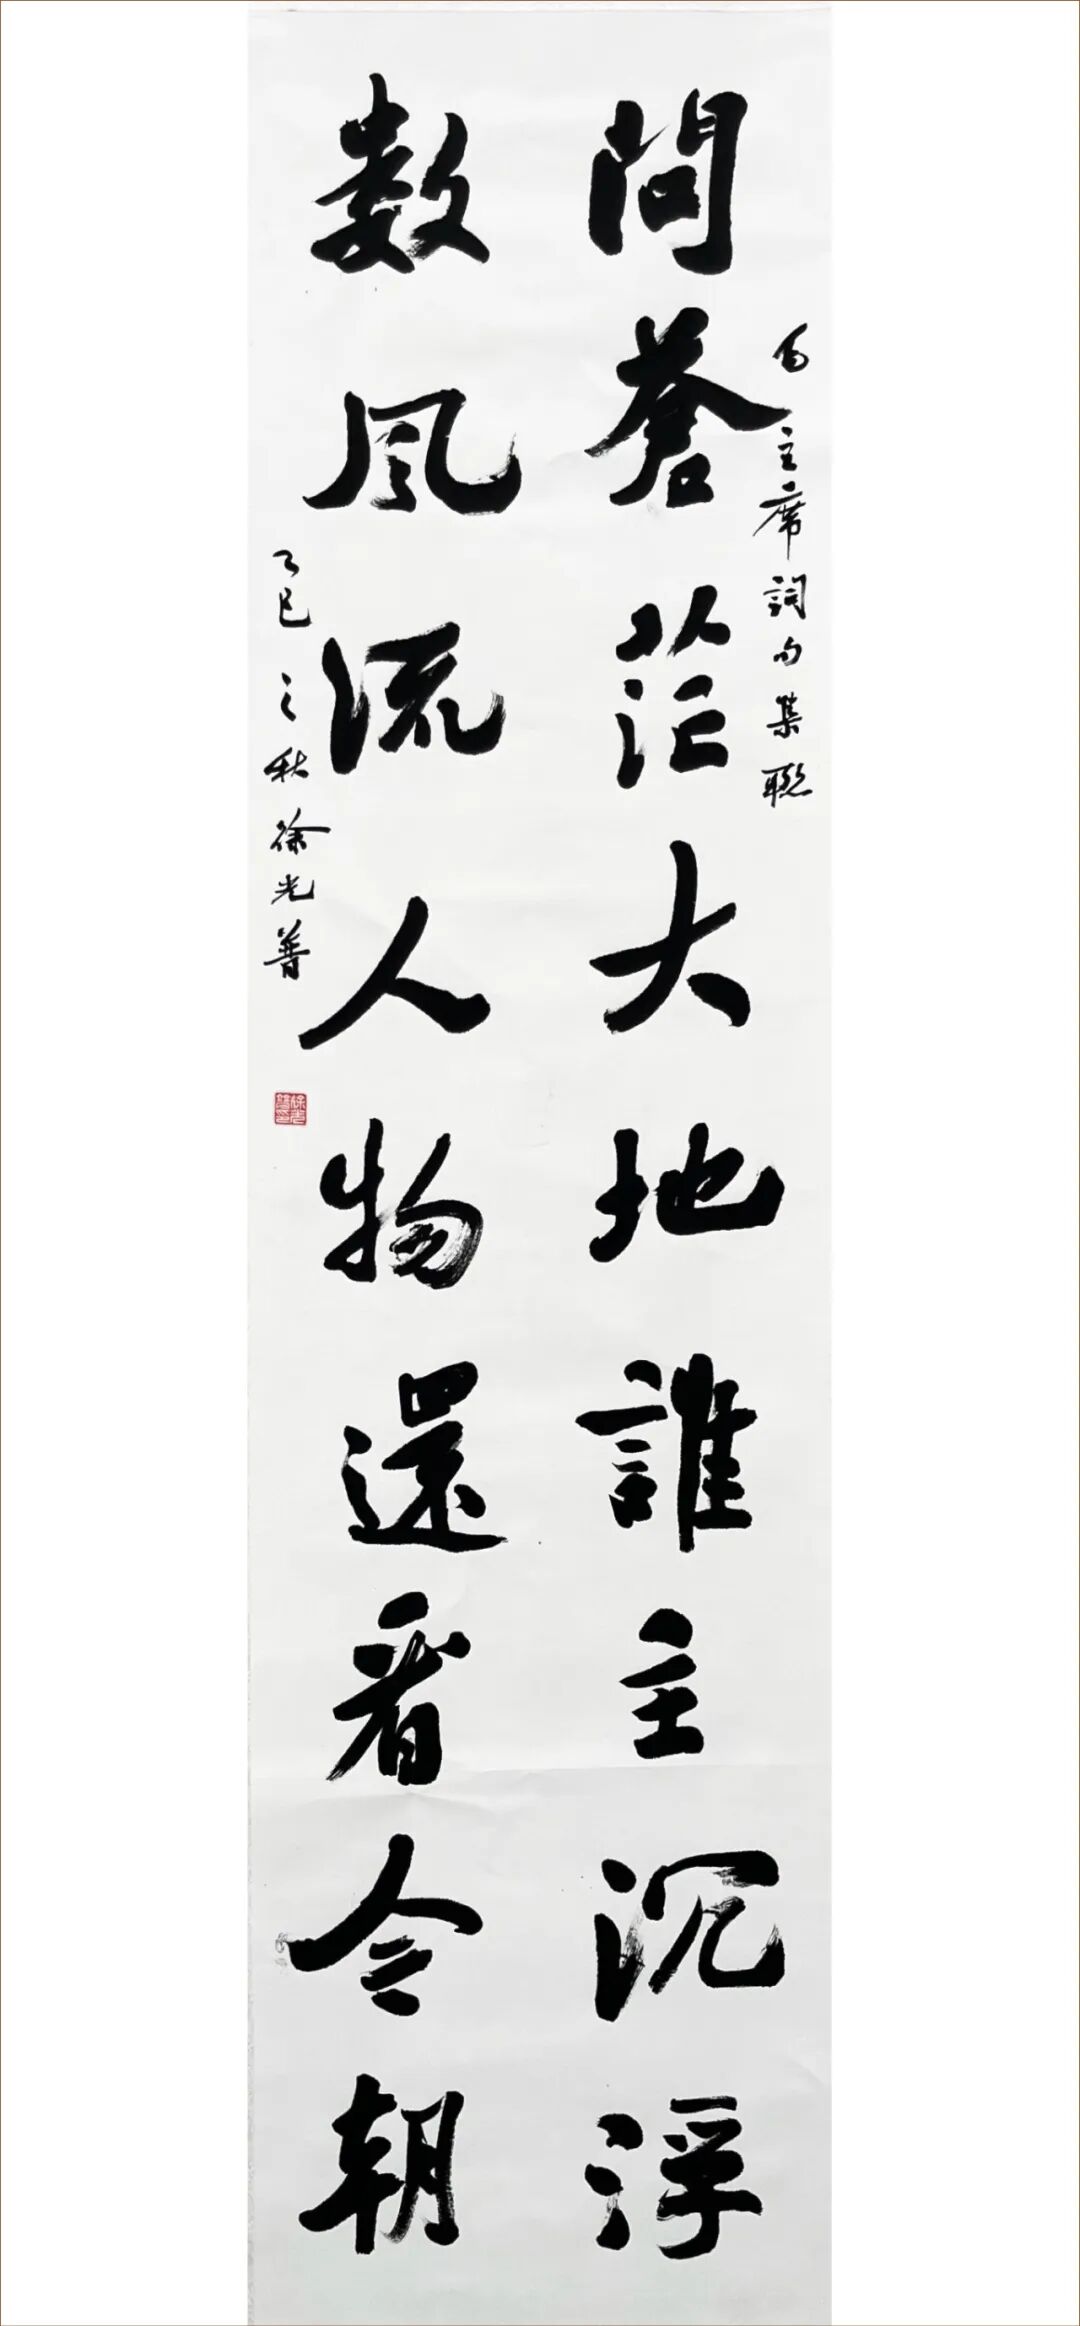 毛主席詞句集聯
問蒼茫大地誰主沉浮
数風流人物還看今朝
乙巳之秋徐光普